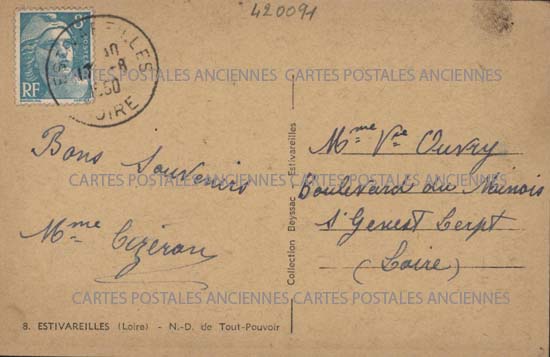 420091
8
RF
ESTIVAREILLES
LOIRE
Bons Souvenirs
Mme Cizeron
Collection Beyssac - Estivareilles
Mme Vve Ouvry
Boulevard du Minois
St Genest Lerpt
(Loire)
CARTES POSTALES ANCIENNES CARTES POSTALES ANCIENNES
CARTES POSTALES ANCIENNES CARTES POSTALES ANCIENNES
CARTES POSTALES ANCIENNES CARTES POSTALES ANCIENNES
8. ESTIVAREILLES (Loire) - N.-D. de Tout-Pouvoir